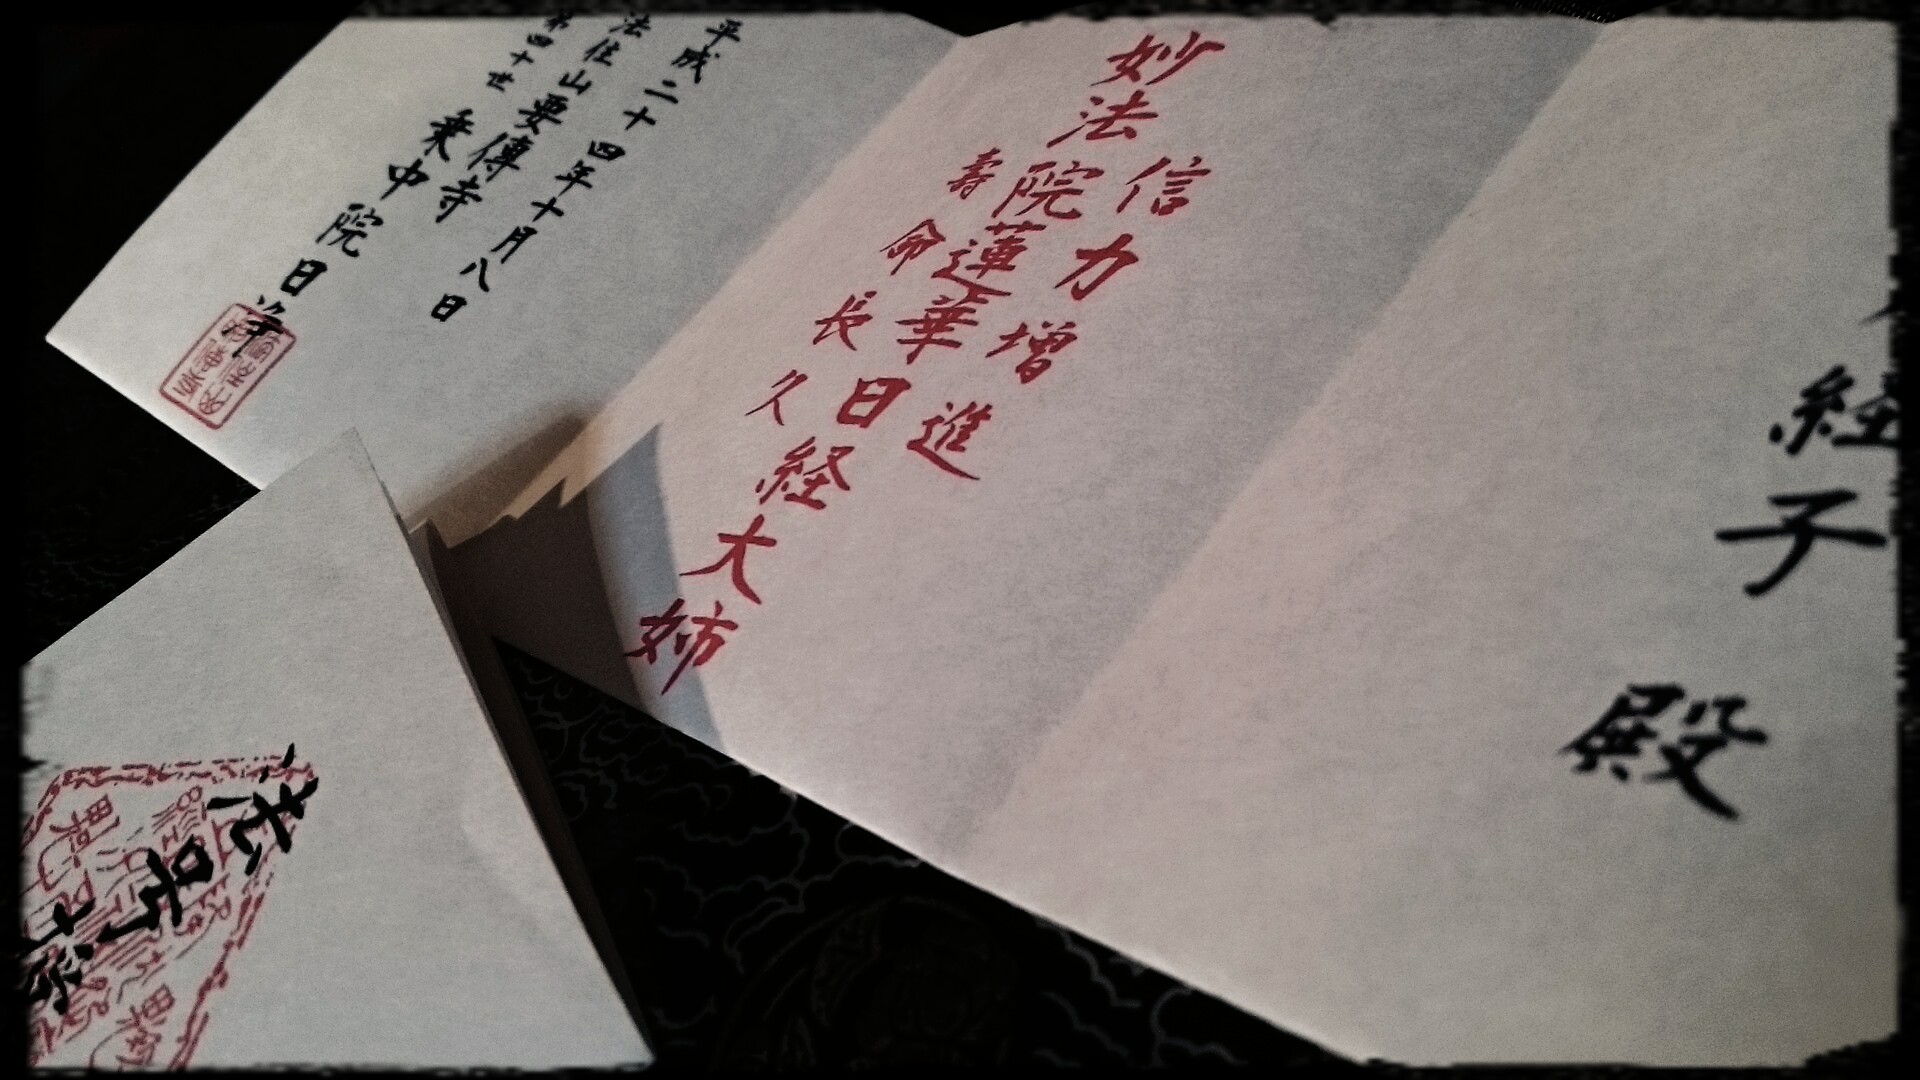 経子 殿
信力増進
妙法院蓮華日経大姉
壽命長久
平成二十四年十月八日
法住山要傳寺
第四十世 乗中院日
法号